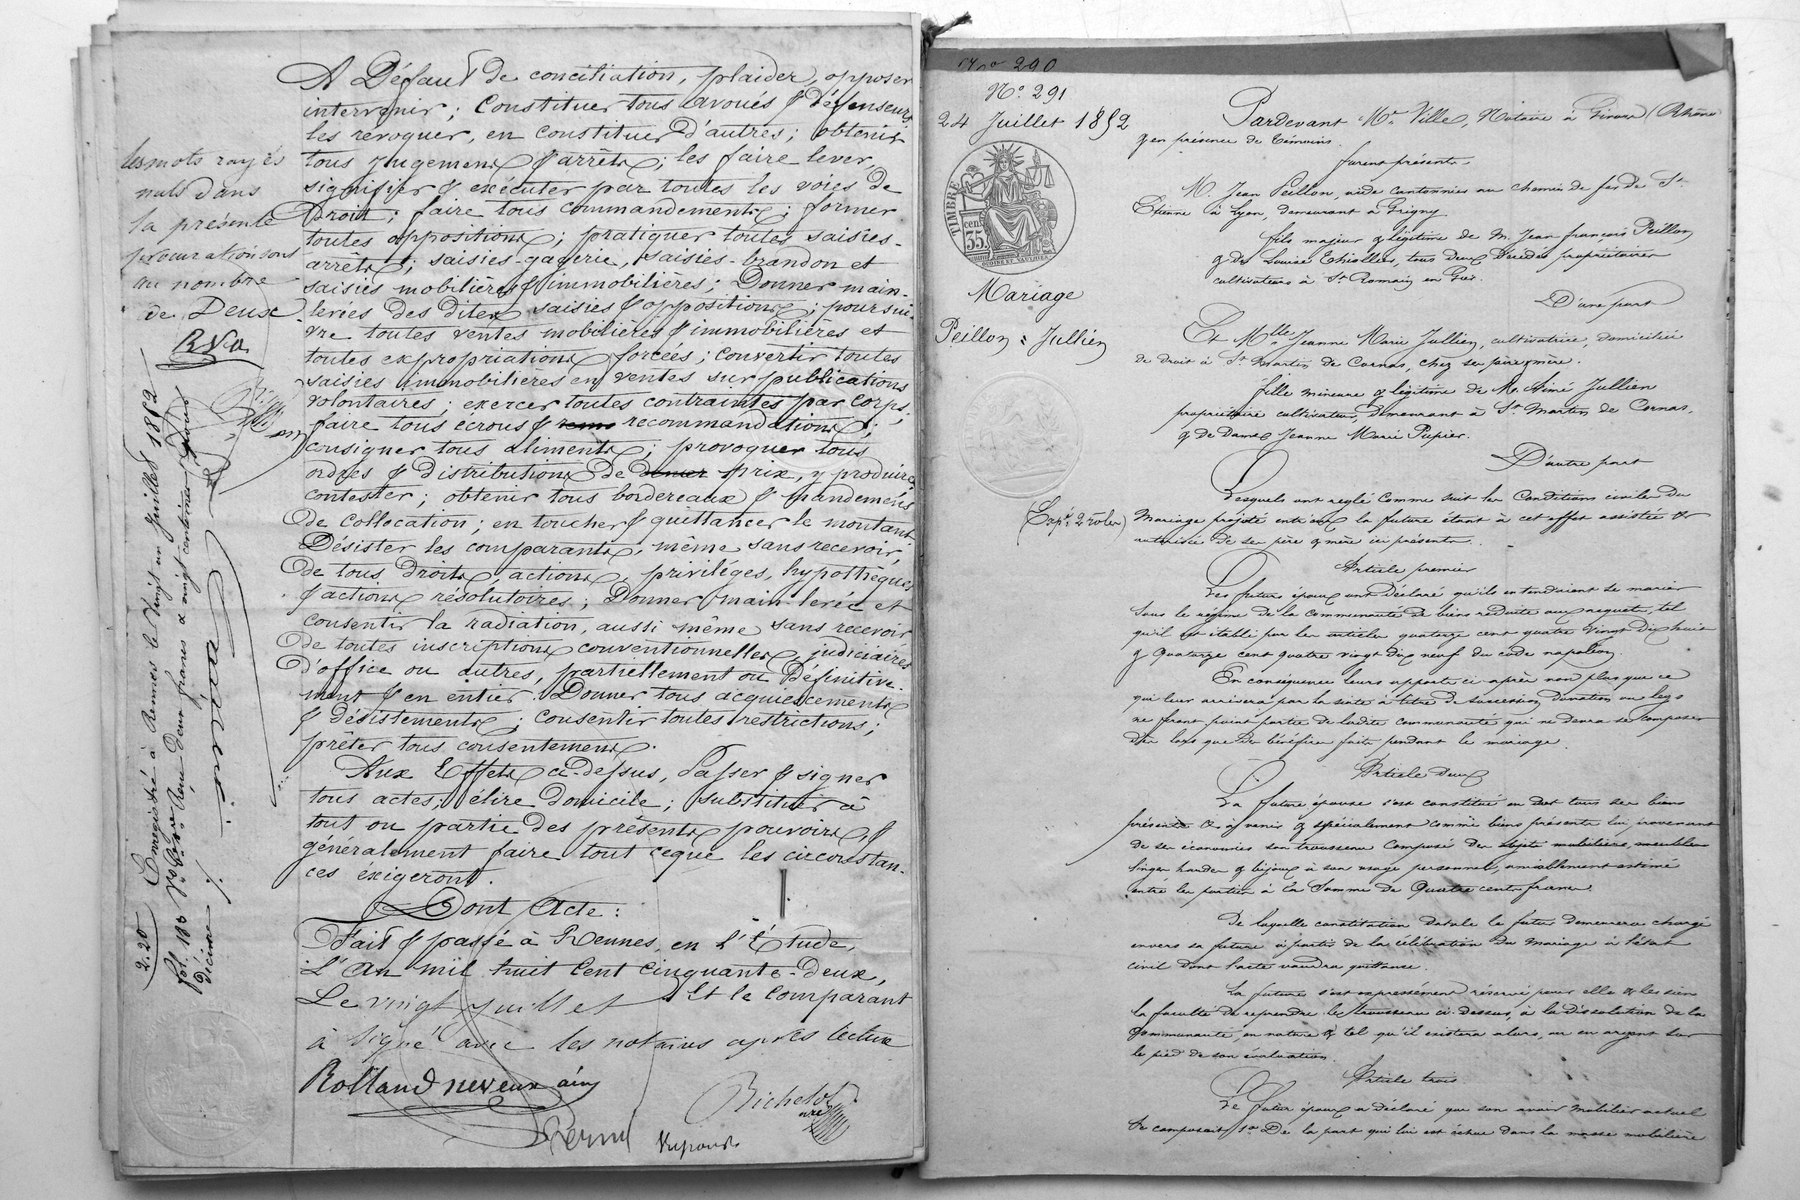 A Défaut de conciliation, plaider, opposer
intervenir; Constituer tous avoués & défenseurs
les révoquer, en constituer d'autres; obtenir
tous jugements & arrêts; les faire lever,
signifier & exécuter par toutes les voies de
Droit; faire tous commandements; former
toutes oppositions; pratiquer toutes saisies-
arrêts; saisies-gagerie, saisies-brandon et
saisies mobilières & immobilières; Donner main-
levées des dites saisies & oppositions; poursui-
vre toutes ventes mobilières & immobilières et
toutes expropriations forcées; convertir toutes
saisies immobilières en ventes sur publications
volontaires; exercer toutes contraintes par corps;
faire tous écrous & recommandations;
consigner tous aliments; provoquer tous
ordres & distributions de prix, y produire,
contester; obtenir tous bordereaux & mandements
de collocation; en toucher & quittancer le montant
Désister les comparants, même sans recevoir,
de tous droits, actions, priviléges, hypothèques
& actions résolutoires; Donner main-levée et
consentir la radiation, aussi même sans recevoir
de toutes inscriptions conventionnelles, judiciaires
d'office ou autres, partiellement ou définitive-
ment & en entier. Donner tous acquiescements
& désistements; consentir toutes restrictions;
prêter tous consentements.
Aux Effets ci-dessus, Passer & signer
tous actes; élire domicile; substituer à
tout ou partie des présents pouvoirs &
généralement faire tout ceque les circonstan-
ces éxigeront.
Dont Acte:
Fait & passé à Rennes, en l'Étude,
L'An mil huit Cent cinquante-deux,
Le vingt juillet Et le comparant
à signé avec les notaires après lecture
Rolland neveux ainé
Richelot
nre
les mots rayés
nuls dans
la présente
procuration sont
au nombre
de Deux
Enregistré à Rennes le Vingt un Juillet 1852
Fol. 180
Reçu deux francs & vingt centimes
décime
2.20
No 290
No. 291
24 Juillet 1852
TIMBRE
35
cen.
Mariage
Peillon = Jullien
(Exp. 2 rôles)
Pardevant Me. Ville, Notaire à Givors (Rhône
& en présence de témoins.
furent présents
M. Jean Peillon, aide cantonnier au chemin de fer de St.
Étienne à Lyon, demeurant à Grigny
fils majeur & légitime de M. Jean françois Peillon
& de Louise tous deux propriétaires
cultivateurs à St. Romain en Gier.
D'une part
Et Mlle Jeanne Marie Jullien, cultivatrice, domiciliée
de droit à St Martin de Cornas, chez ses père & mère.
fille mineure & légitime de M. Aimé Jullien
propriétaire cultivateur, demeurant à St Martin de Cornas.
& de Dame Jeanne Marie Pupier.
D'autre part
Lesquels ont réglé comme suit les Conditions civiles du
Mariage projeté entr'eux la future étant à cet effet assistée &
autorisée de ses père & mère ici présents.
Article premier
Les futurs époux ont déclaré qu'ils entendaient se marier
sous le régime de la communauté de biens réduite aux acquets, tel
qu'il est établi par les articles quatorze cent quatre vingt dix huit
& quatorze cent quatre vingt dix neuf du code napoléon.
En conséquence leurs apports ci après non plus que ce
qui leur arrivera par la suite à titre de succession, donation ou legs
ne feront point partie de ladite communauté qui ne devra se composer
dès lors que des bénéfices faits pendant le mariage.
Article deux
La future épouse s'est constitué en dot tous ses biens
présents & à venir & spécialement comme biens présents lui provenant
de ses économies son trousseau composé des objets mobiliers, meubles
linges hardes & bijoux à son usage personnel, amiablement estimé
entre les parties à la Somme de Quatre cent francs.
De laquelle constitution dotale le futur demeurera chargé
envers sa future à partir de la célébration du mariage à l'état
civil dont l'acte vaudra quittance.
La future s'est expressément réservé pour elle & les siens
la faculté de reprendre le trousseau ci-dessus, à la dissolution de la
communauté, en nature & tel qu'il existera alors, ou en argent sur
le pied de son évaluation.
Article trois
Le futur époux a déclaré que son avoir mobilier actuel
se composait 1o. De la part qui lui est échue dans la masse mobilière